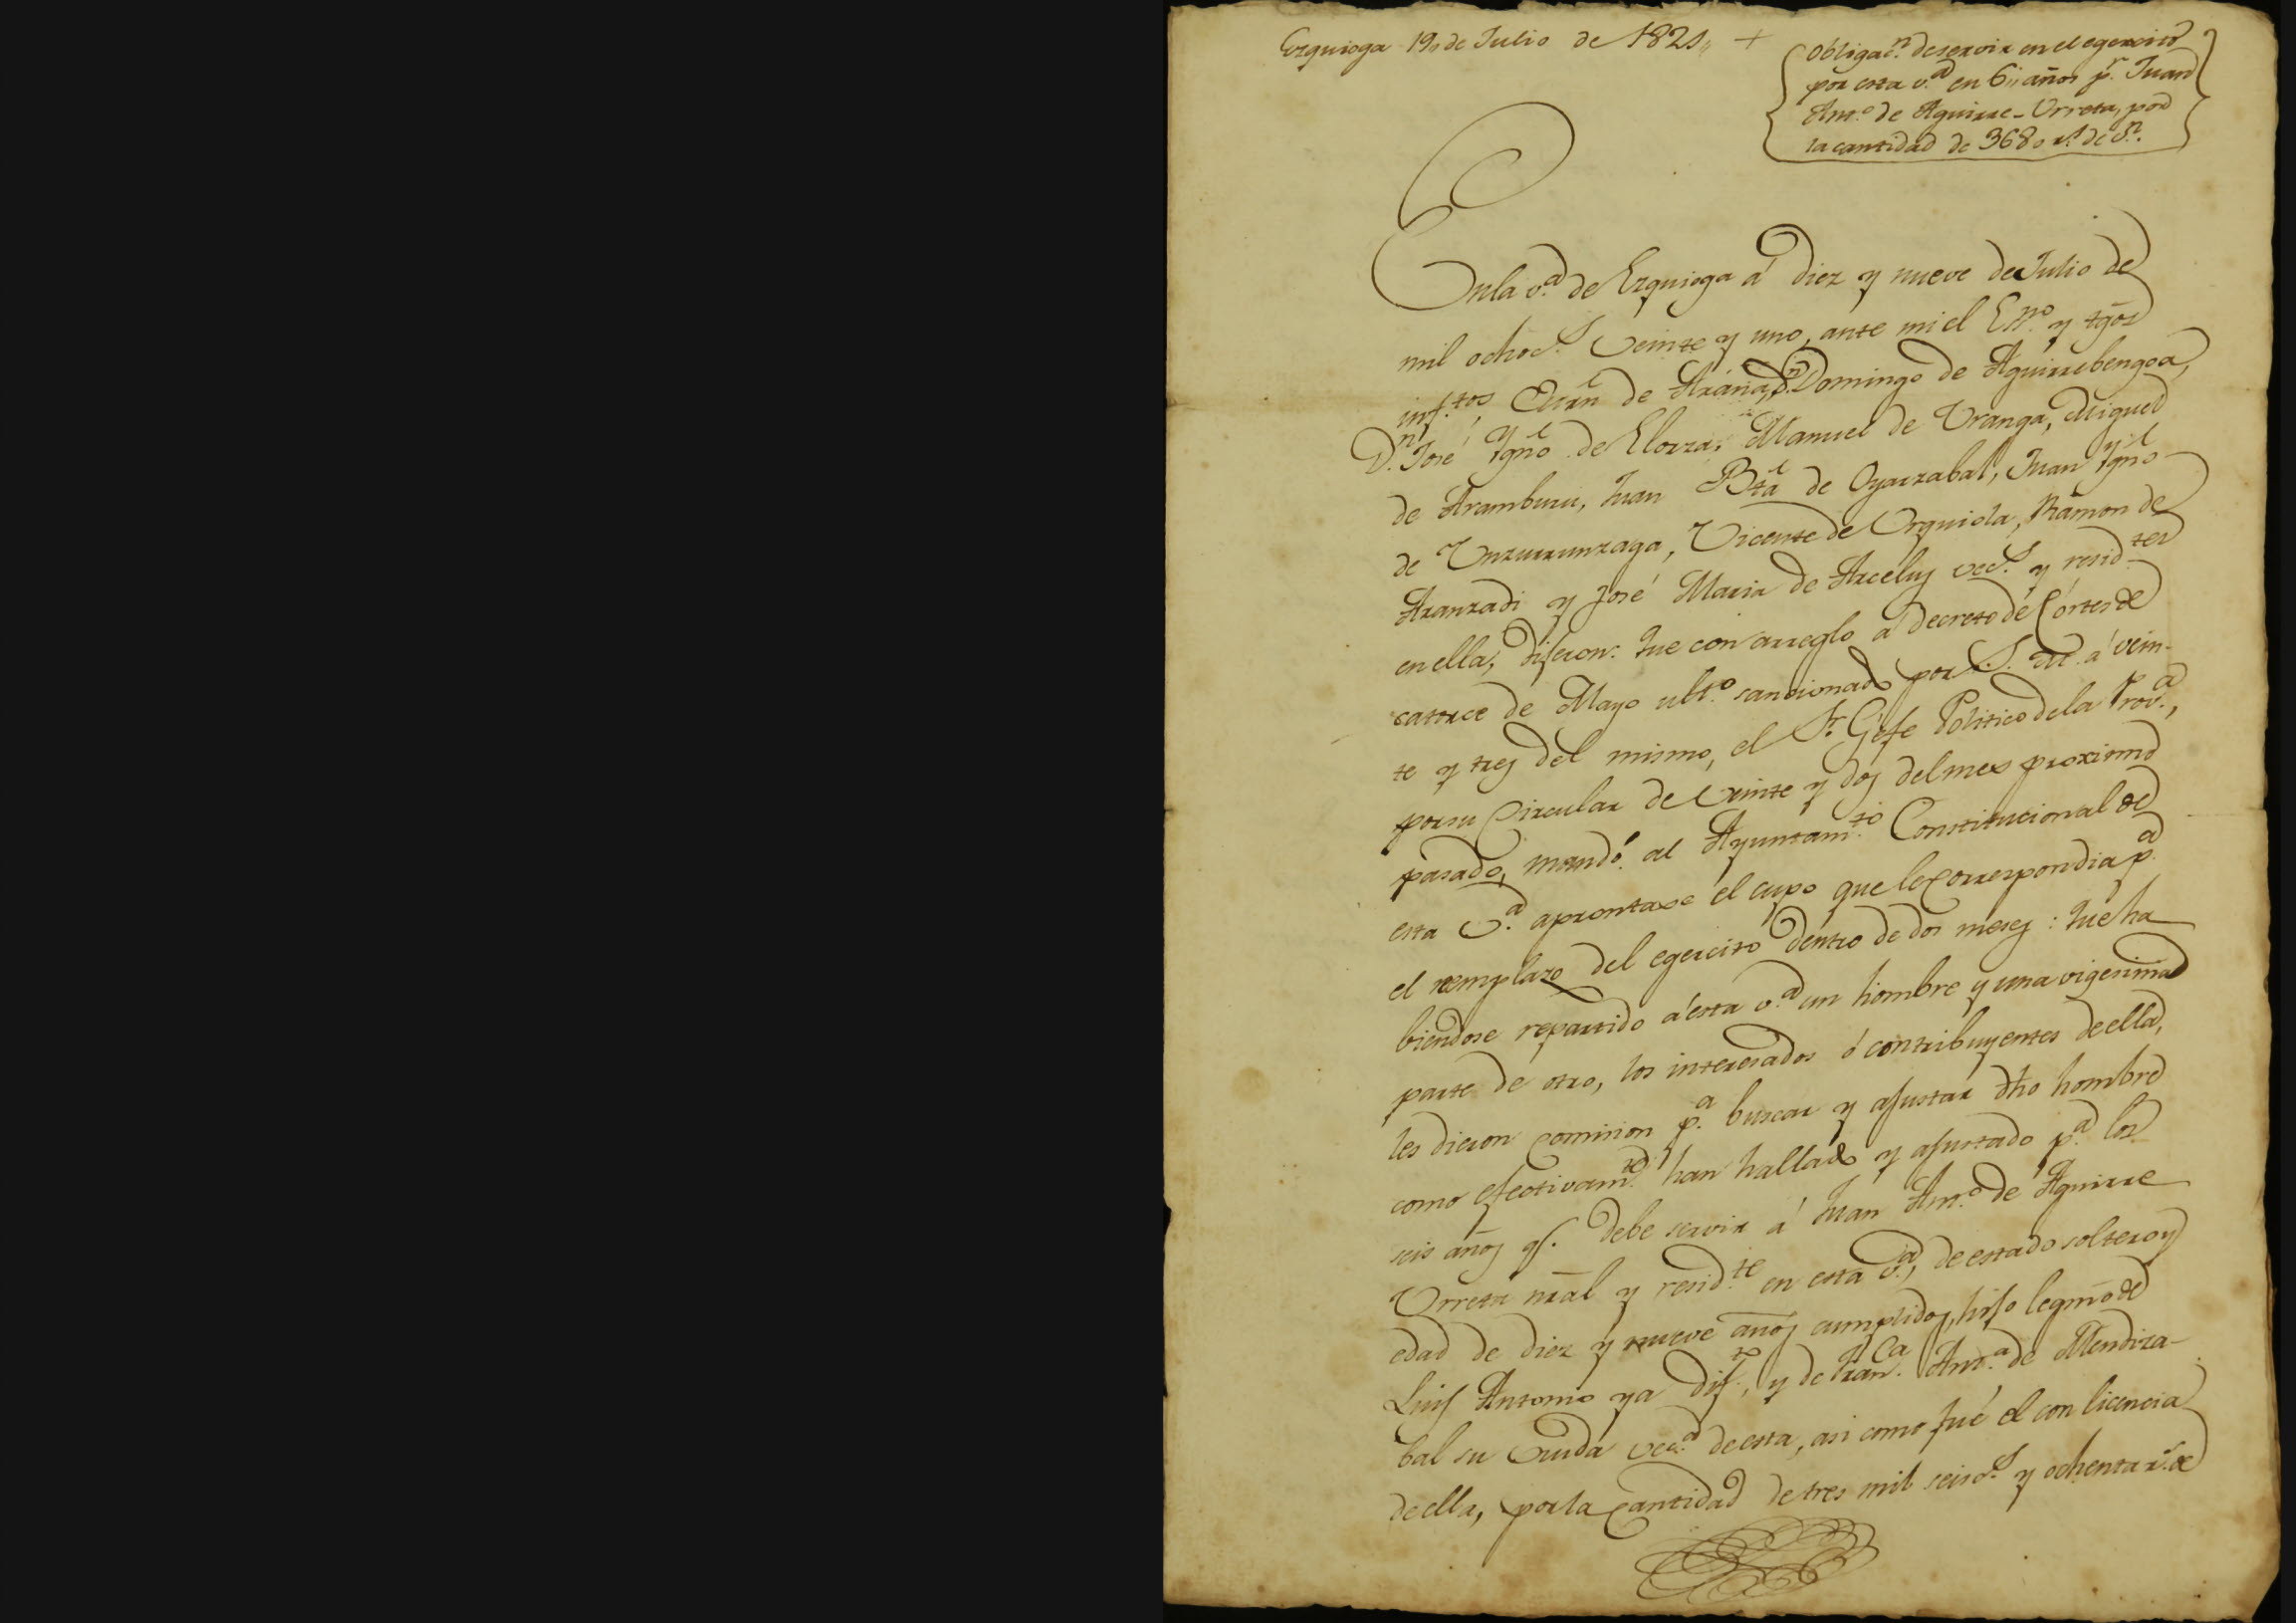 Ezquioga 19,, de Julio de 1821,, +
Obligac.n de servir en el egercito
por esta v.a en 6,, años p.r Juan
Ant.o de Aguirre-Urreta, por
la cantidad de 3680 r.s de v.n
En la v.a de Ezquioga á diez y nueve de Julio de
mil ochoc.s veinte y uno, ante mi el Es.no y tgos
inf.tos, de Arana, D.n Domingo de Aguirrebengoa,
D.n José Ygño de Elorza, Manuel de Uranga, Miguel
de Aramburu, Juan Bta de Oyarzabal, Juan Ygño
de Unzurrunzaga, Vicente de Urquiola, Ramon de
Aranzadi y José Maria de Arceluz vec.s y resid.tes
en ella, dijeron: Que con arreglo a decreto de Córtes de
catorce de Mayo ult.o sancionado por S. M. á vein-
te y tres del mismo, el S.r Gefe Politico de la Prov.a,
por su Circular de veinte y dos del mes proximo
pasado, mandó al Ayuntam.to Constitucional de
esta v.a aprontase el cupo que le correspondia p.a
el remplazo del egercito dentro de dos meses: Que ha
biendose repartido á esta v.a un hombre y una vigesima
parte de otro, los interesados ó contribuyentes de ella,
les dieron comision p.a buscar y ajustar dho hombre
como efectivam.te han hallado y ajustado p.a los
seis años q.e debe servir á Juan Ant.o de Aguirre
Urreta nral y resid.te en esta v.a, de estado soltero y
edad de diez y nueve años cumplidos, hijo legmo de
Luis Antonio ya dif.to, y de Fran.ca Ant.a de Mendiza-
bal su viuda vec.a de esta, asi como fué el con licencia
de ella, por la cantidad de tres mil seisc.s y ochenta r.s de